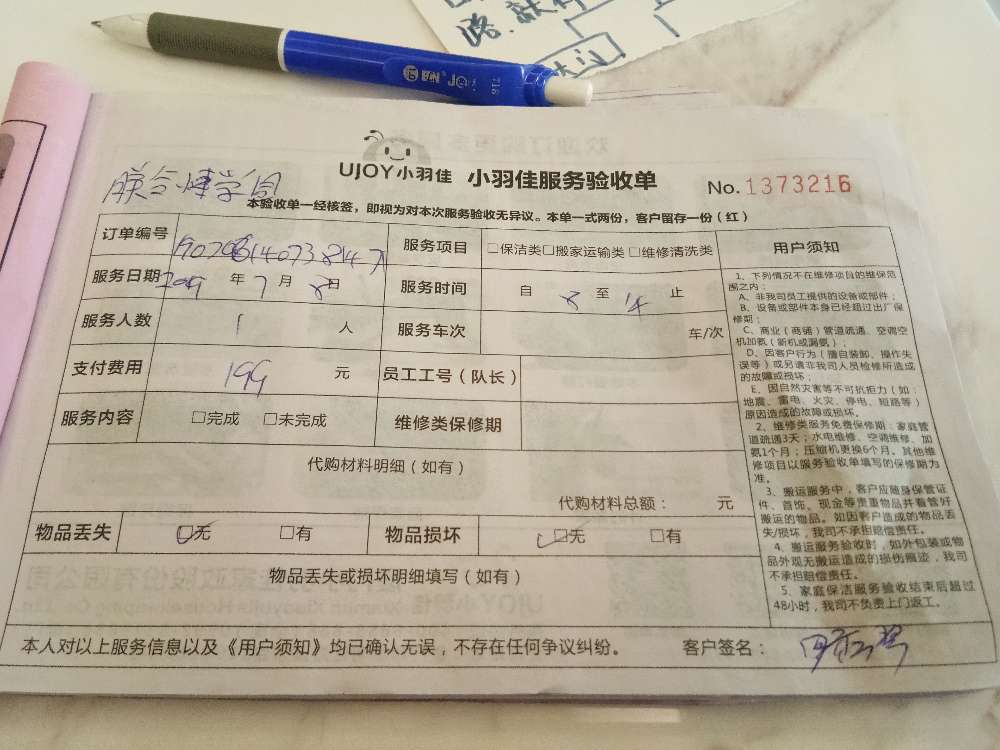 UJOY小羽佳 小羽佳服务验收单 No.1373216
本验收单一经核签，即视为对本次服务验收无异议。本单一式两份，客户留存一份（红）
订单编号
服务项目 □保洁类□搬家运输类 □维修清洗类
服务日期 2019 年 7 月 8 日
服务时间 自 8 至 14 止
服务人数 1 人
服务车次 车/次
支付费用 199 元
员工工号（队长）
服务内容 □完成 □未完成
维修类保修期
代购材料明细（如有）
代购材料总额： 元
物品丢失 □无 □有
物品损坏 □无 □有
物品丢失或损坏明细填写（如有）
用户须知
1、下列情况不在维修项目的维保范
围之内：
A、非我司员工提供的设备或部件；
B、设备或部件本身已经超过出厂保
修期；
C、商业（商铺）管道疏通、空调空
机加氨（新机或漏氨）；
D、因客户行为（擅自装卸、操作失
误等）或另请非我司人员检修所造成
的故障或损坏；
E、因自然灾害等不可抗拒力（如：
地震、雷电、火灾、停电、短路等）
原因造成的故障或损坏。
2、维修类服务免费保修期：家庭管
道疏通3天；水电维修、空调维修、加
氨1个月；压缩机更换6个月。其他维
修项目以服务验收单填写的保修期为
准。
3、搬运服务中，客户应随身保管证
件、首饰、现金等贵重物品并看管好
搬运的物品。如因客户造成的物品丢
失/损坏，我司不承担赔偿责任。
4、搬运服务验收时，如外包装或物
品外观无搬运造成的损伤痕迹，我司
不承担赔偿责任。
5、家庭保洁服务验收结束后超过
48小时，我司不负责上门返工。
本人对以上服务信息以及《用户须知》均已确认无误，不存在任何争议纠纷。 客户签名：